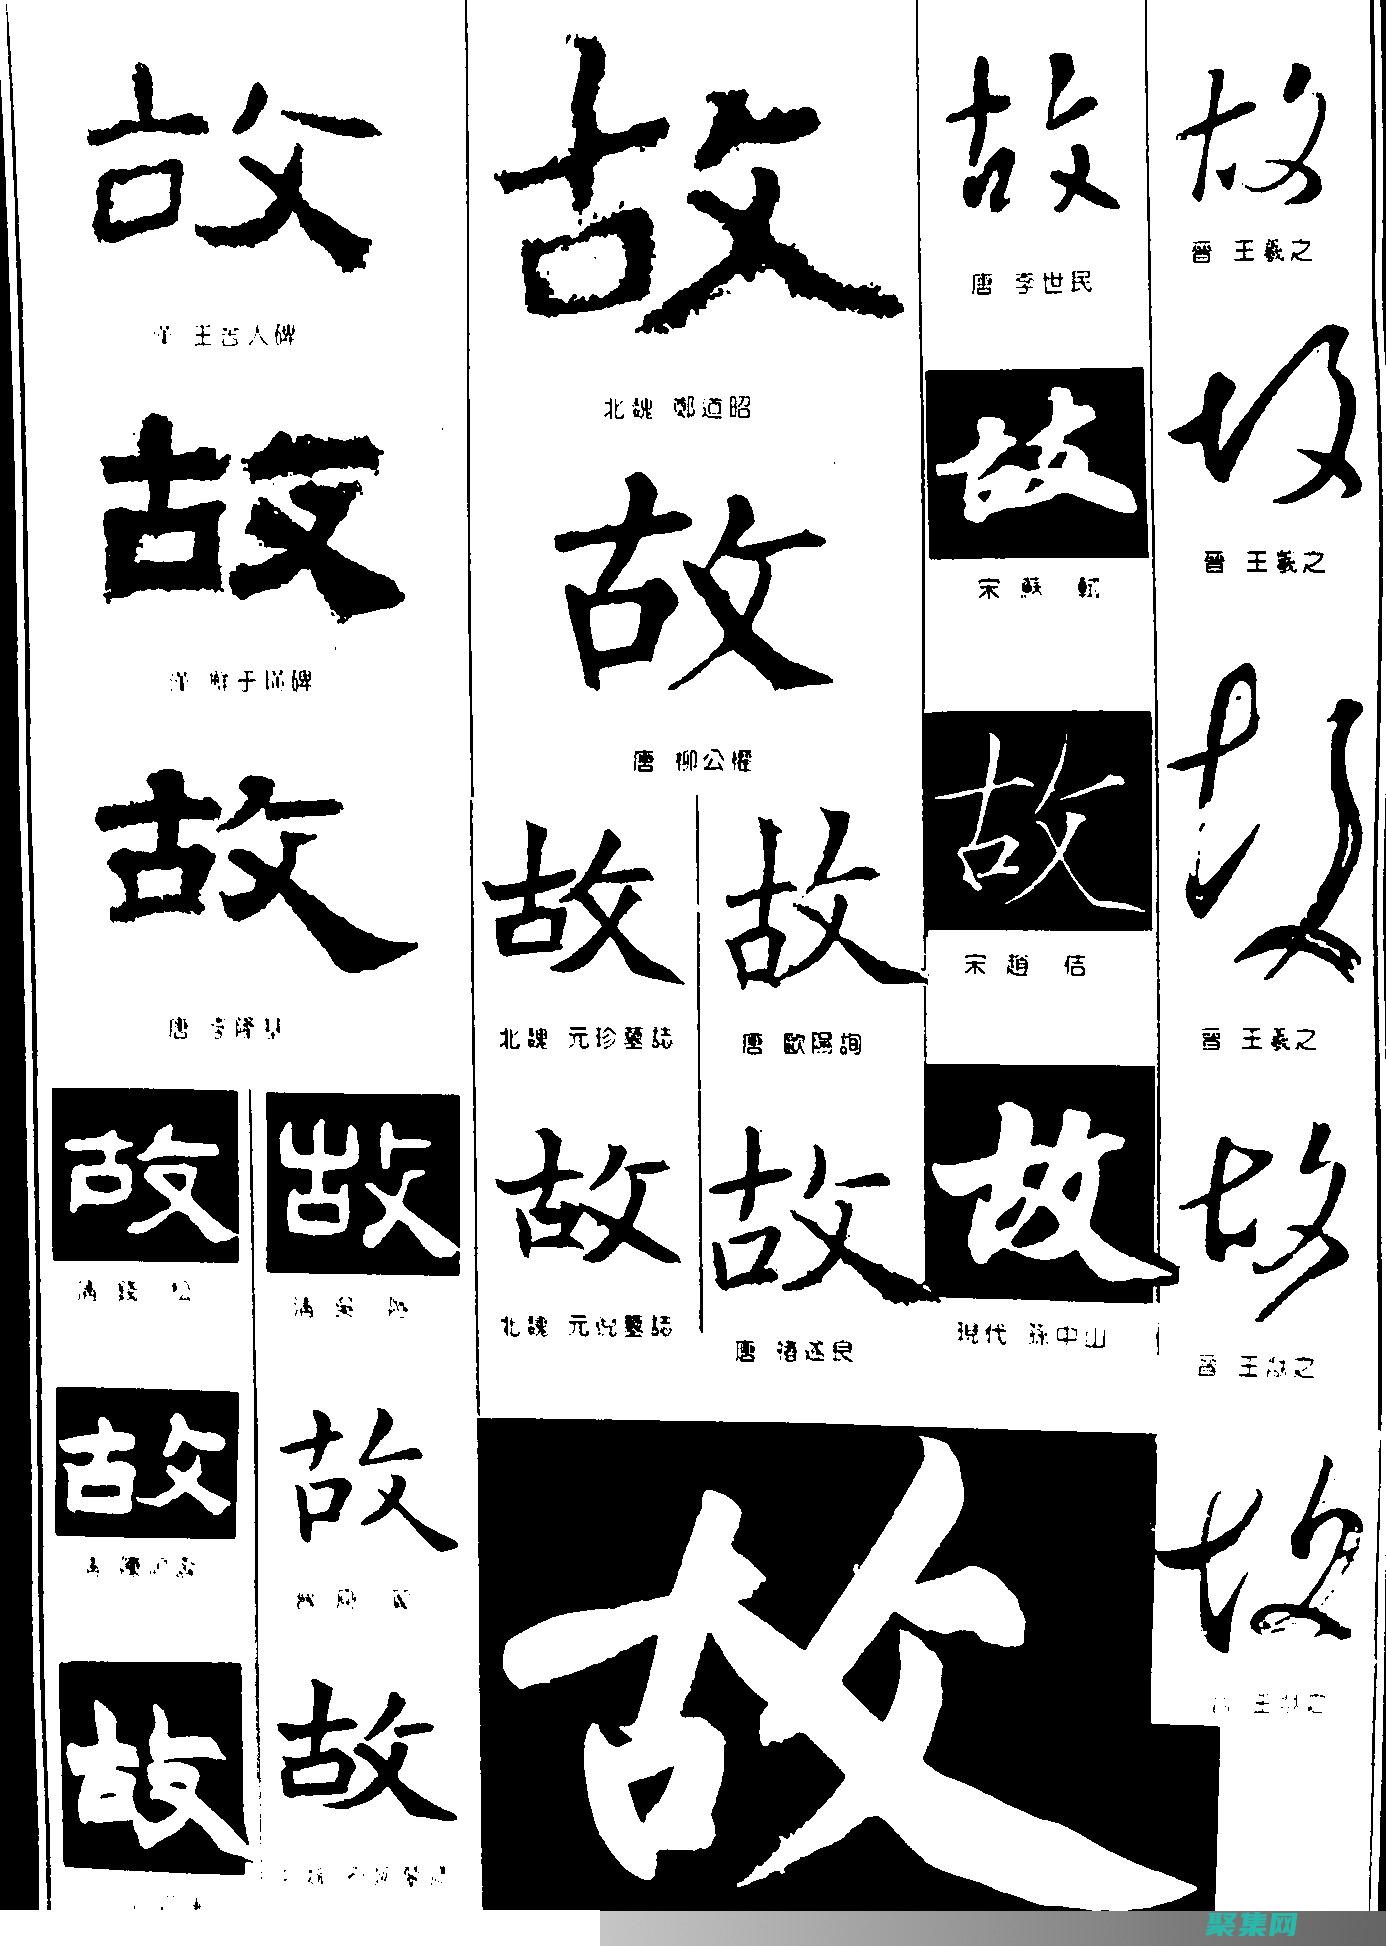 故
王舍人碑
故
鮮于璜碑
故
唐 李隆基
故
清 錢 松
故
清 吳
故
故
故
故
故
北魏 鄭道昭
故
唐 柳公權
故
北魏 元珍墓誌
故
唐 歐陽詢
故
北魏 元倪墓誌
故
唐 褚遂良
故
故
唐 李世民
故
宋 蘇 軾
故
宋 趙 佶
故
現代 孫中山
故
晉 王羲之
故
晉 王羲之
故
晉 王羲之
故
晉 王獻之
故
王獻之
聚集网